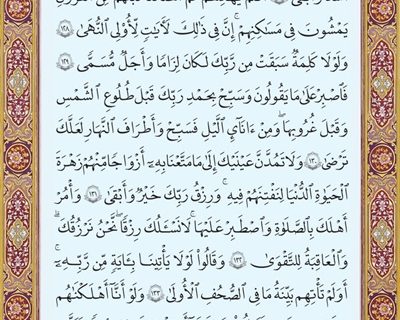 يَمْشُونَ فِي مَسَٰكِنِهِمْ ۚ إِنَّ فِي ذَٰلِكَ لَءَايَٰتٍ لِّأُو۟لِي ٱلنُّهَىٰ ١٢٨
وَلَوْلَا كَلِمَةٌ سَبَقَتْ مِن رَّبِّكَ لَكَانَ لِزَامًا وَأَجَلٌ مُّسَمًّى ١٢٩
فَٱصْبِرْ عَلَىٰ مَا يَقُولُونَ وَسَبِّحْ بِحَمْدِ رَبِّكَ قَبْلَ طُلُوعِ ٱلشَّمْسِ
وَقَبْلَ غُرُوبِهَا ۖ وَمِنْ ءَانَآئِ ٱلَّيْلِ فَسَبِّحْ وَأَطْرَافَ ٱلنَّهَارِ لَعَلَّكَ
تَرْضَىٰ ١٣٠ وَلَا تَمُدَّنَّ عَيْنَيْكَ إِلَىٰ مَا مَتَّعْنَا بِهِۦٓ أَزْوَٰجًا مِّنْهُمْ زَهْرَةَ
ٱلْحَيَوٰةِ ٱلدُّنْيَا لِنَفْتِنَهُمْ فِيهِ ۚ وَرِزْقُ رَبِّكَ خَيْرٌ وَأَبْقَىٰ ١٣١ وَأْمُرْ
أَهْلَكَ بِٱلصَّلَوٰةِ وَٱصْطَبِرْ عَلَيْهَا ۖ لَا نَسْـَٔلُكَ رِزْقًا ۖ نَّحْنُ نَرْزُقُكَ ۗ
وَٱلْعَٰقِبَةُ لِلتَّقْوَىٰ ١٣٢ وَقَالُوا۟ لَوْلَا يَأْتِينَا بِـَٔايَةٍ مِّن رَّبِّهِۦٓ ۚ
أَوَلَمْ تَأْتِهِم بَيِّنَةُ مَا فِي ٱلصُّحُفِ ٱلْأُولَىٰ ١٣٣ وَلَوْ أَنَّآ أَهْلَكْنَٰهُم